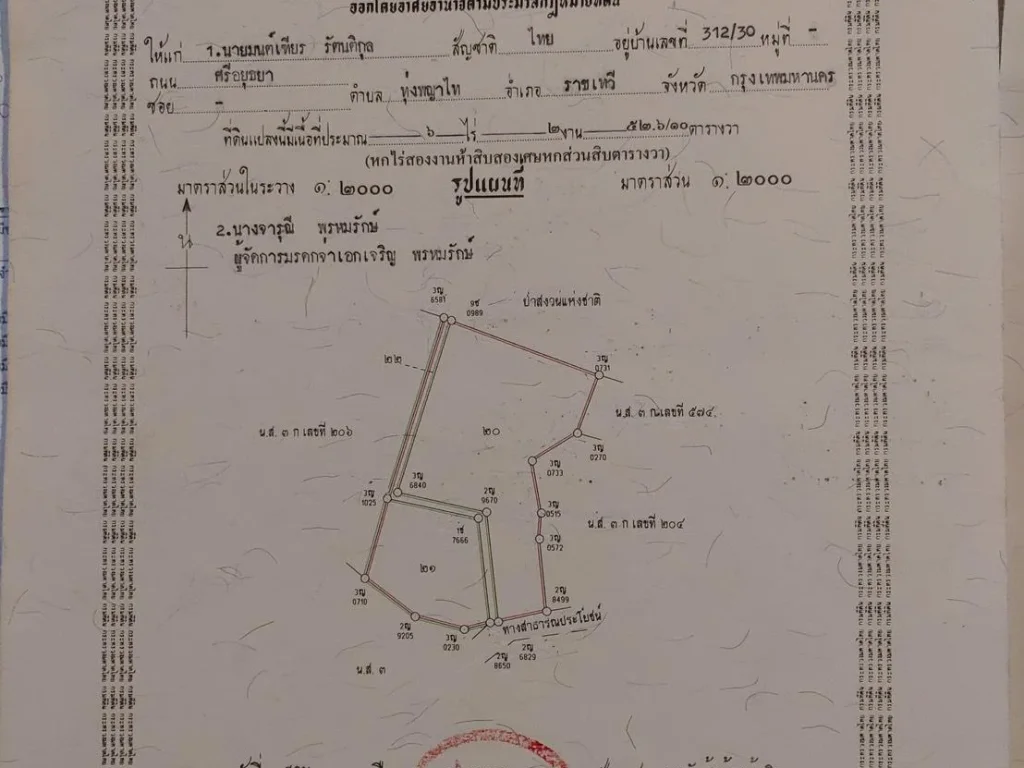 ออกโดยอาศัยอำนาจตามประมวลกฎหมายที่ดิน
ให้แก่ 1.นายมนต์เทียร รัตนติกุล สัญชาติ ไทย อยู่บ้านเลขที่ 312/30 หมู่ที่ -
ถนน ศรีอยุธยา
ซอย - ตำบล ทุ่งพญาไท อำเภอ ราชเทวี จังหวัด กรุงเทพมหานคร
ที่ดินแปลงนี้มีเนื้อที่ประมาณ ๖ ไร่ ๒ งาน ๕๒.๖/๑๐ ตารางวา
(หกไร่สองงานห้าสิบสองเศษหกส่วนสิบตารางวา)
มาตราส่วนในระวาง ๑:๒๐๐๐ รูปแผนที่ มาตราส่วน ๑:๒๐๐๐
น
2.นางจารุณี พรหมรักษ์
ผู้จัดการมรดกจ่าเอกเจริญ พรหมรักษ์
3ญ
6581
9ช
0989
ป่าสงวนแห่งชาติ
๒๒
3ญ
0731
น.ส. ๓ ก เลขที่ ๒๐๖
๒๐
น.ส. ๓ ก เลขที่ ๕๗๔
3ญ
0270
3ญ
0733
3ญ
6840
3ญ
1025
2ญ
9670
1ช
7666
3ญ
0515
น.ส. ๓ ก เลขที่ ๒๐๔
3ญ
0572
๒๑
3ญ
0710
2ญ
8499
2ญ
9205
3ญ
0230
ทางสาธารณประโยชน์
2ญ
8650
2ญ
6829
น.ส. ๓